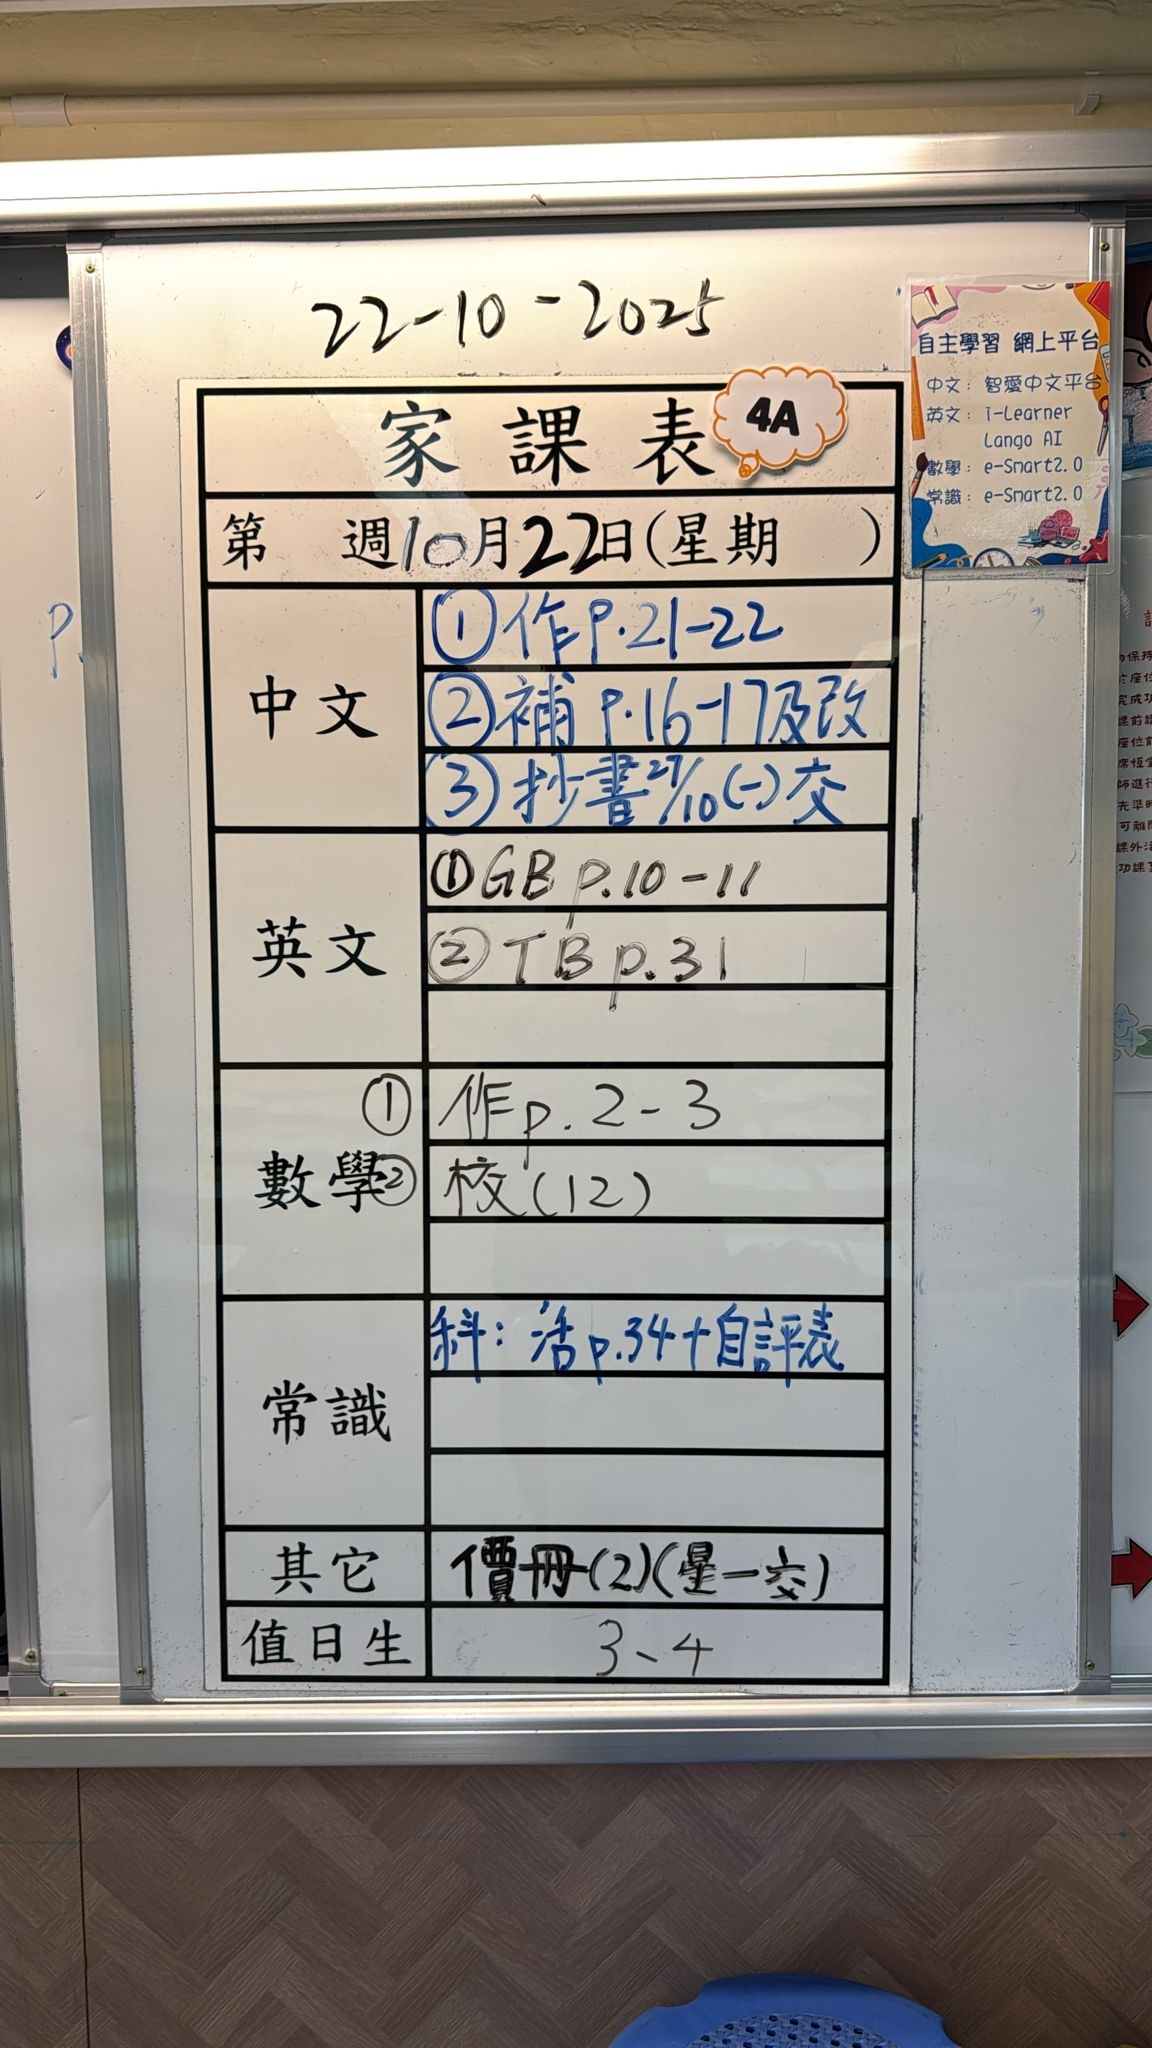 22-10-2025
家課表 4A
第 週10月22日(星期 )
中文
①作p.21-22
②補p.16-17及改
③抄書27/10(一)交
英文
①GB p.10-11
②TB p.31
數學
①作p.2-3
②校(12)
常識
科：活p.34+自評表
其它
價冊(2)(星一交)
值日生
3、4
自主學習 網上平台
中文：智愛中文平台
英文：i-Learner
Lango AI
數學：e-Smart2.0
常識：e-Smart2.0
p.